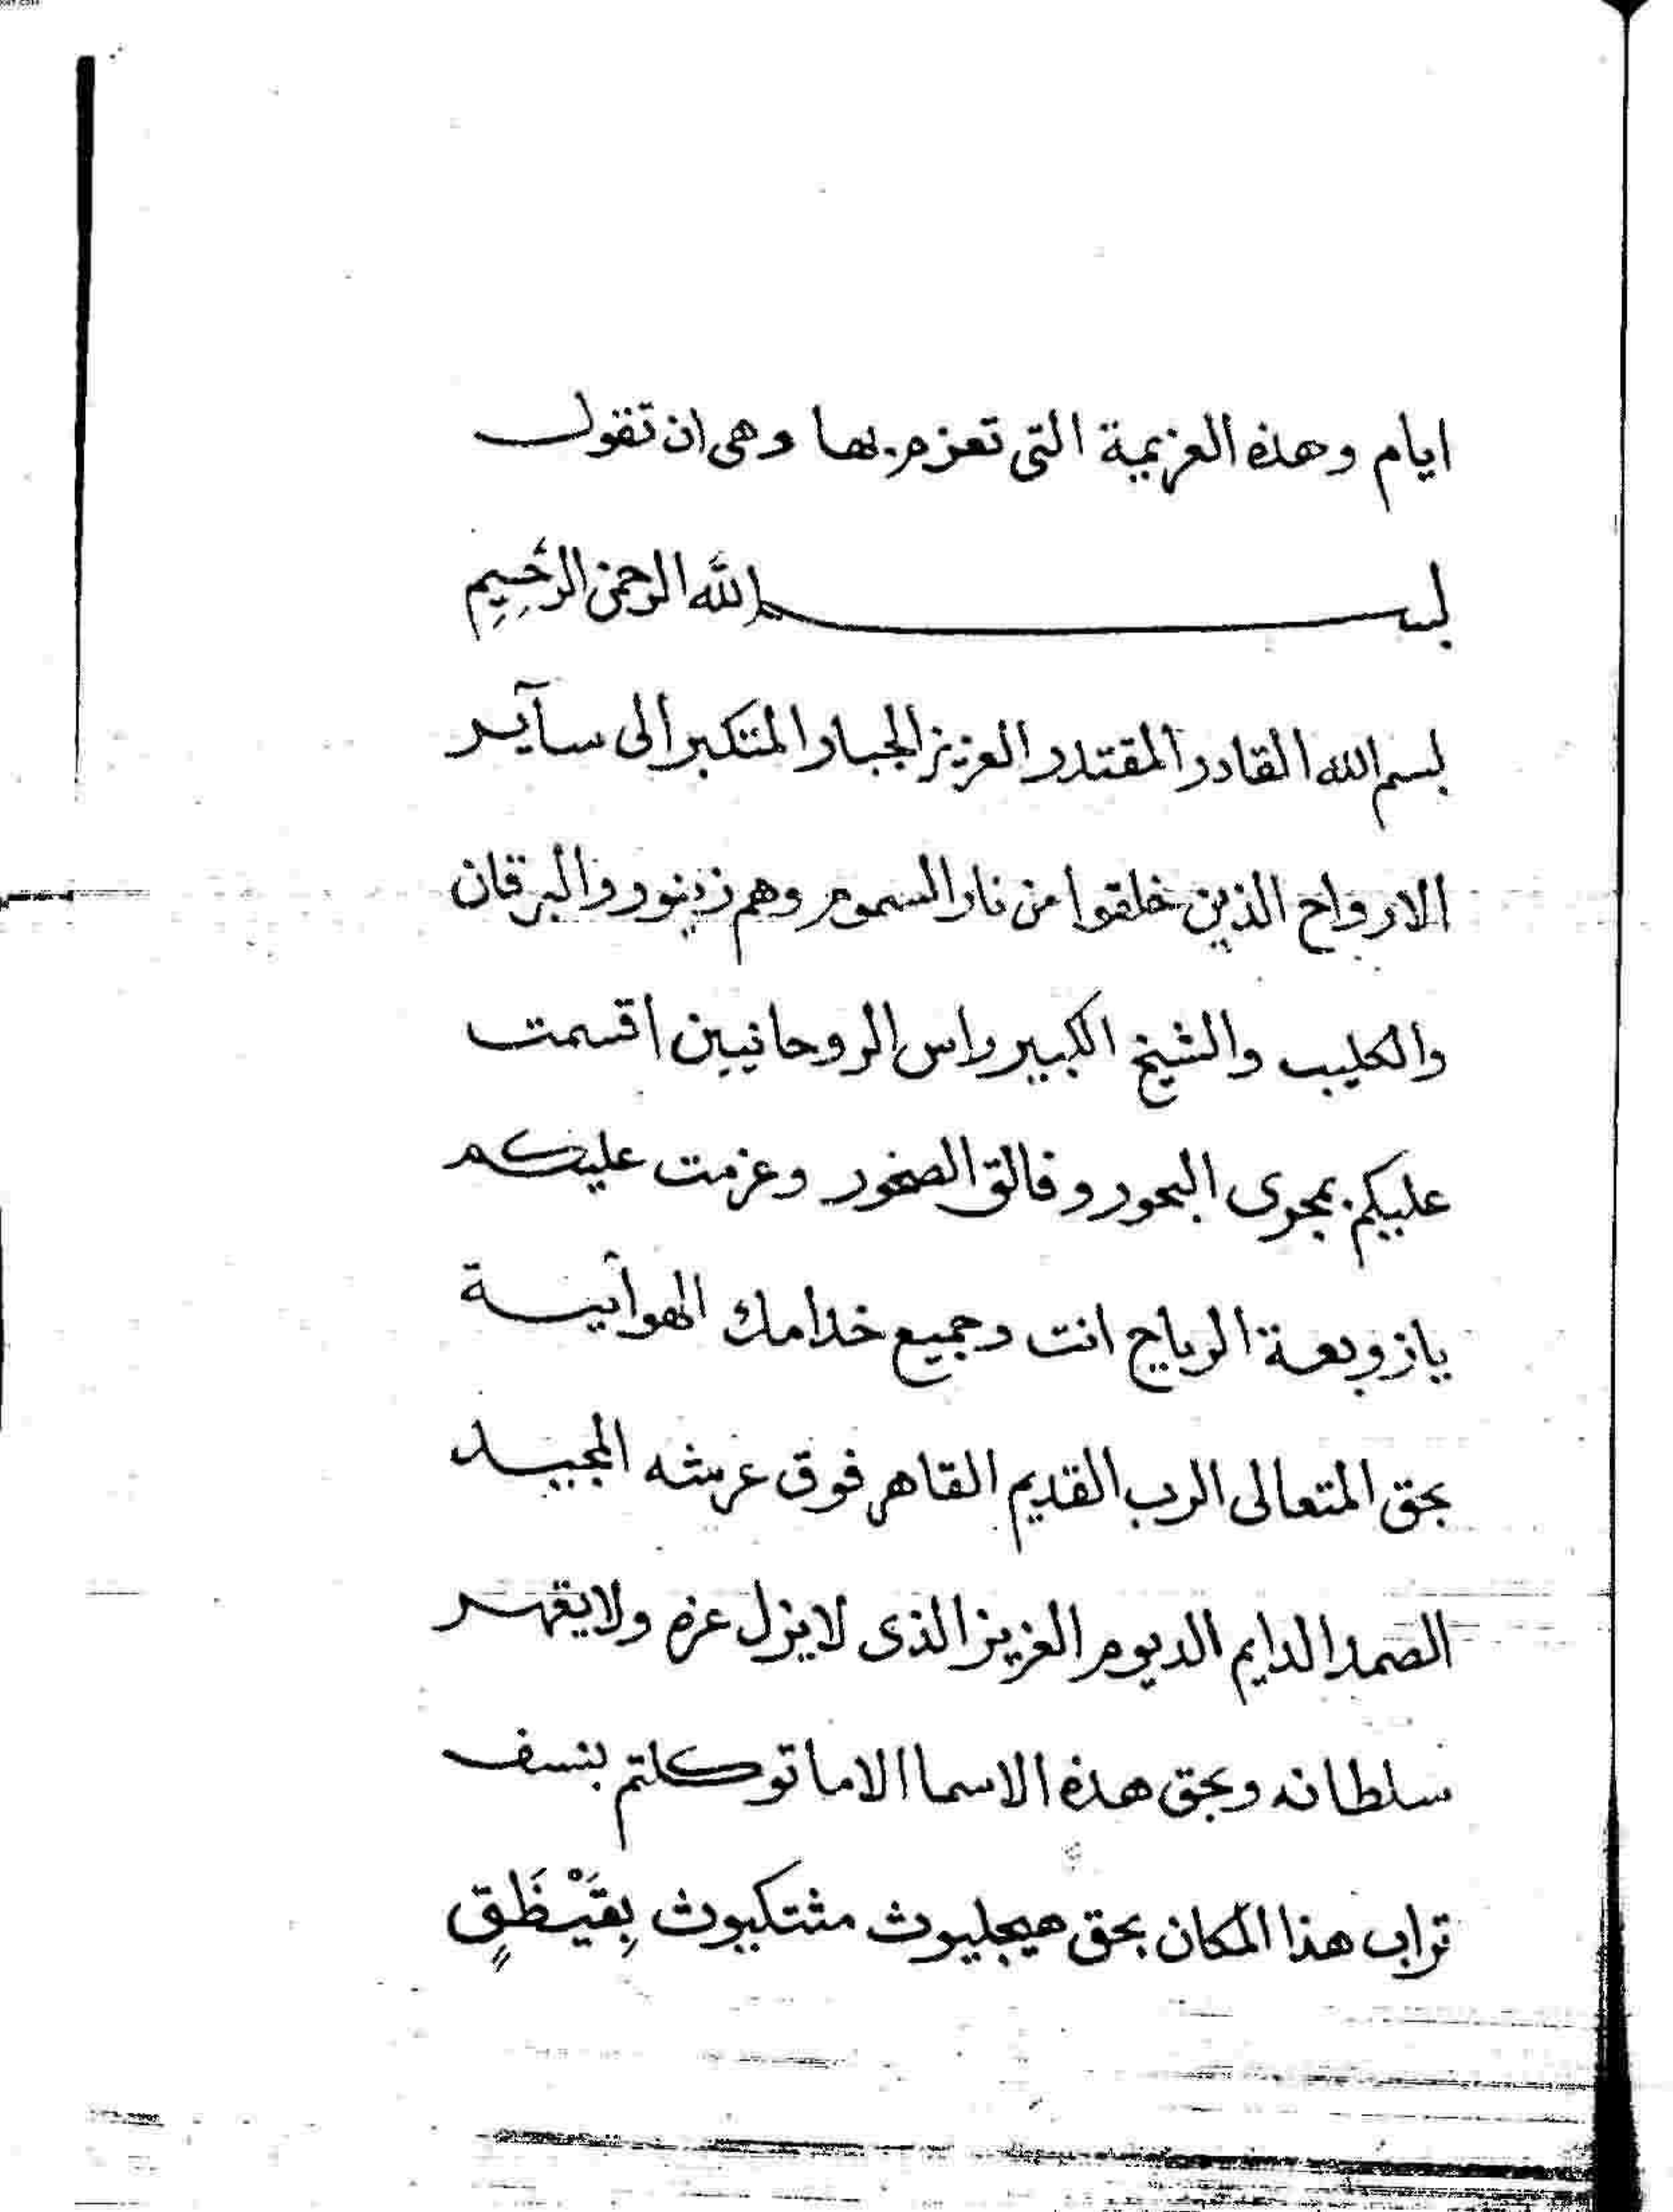 ايام وهذه العزيمة التى تعزم بها وهى ان تقول
بسم الله الرحمن الرَّحِيمِ
بسم الله القادر المقتدر العزيز الجبار المتكبر الى سآير
الارواح الذين خلقوا من نار السموم وهم زينور والبرقان
والكليب والشيخ الكبير راس الروحانيين اقسمت
عليكم بمجرى البحور وفالق الصخور وعزمت عليكم
يا زوبعة الرياح انت وجميع خدامك الهوايية
بحق المتعالى الرب القديم القاهر فوق عرشه المجيد
الصمد الدايم الديوم العزيز الذى لا يزل عزه ولا يقهر
سلطانه وبحق هذه الاسما الا ما توكلتم بنسف
تراب هذا المكان بحق هيجليوث مثتكبوث بِقَيْظَقٍ